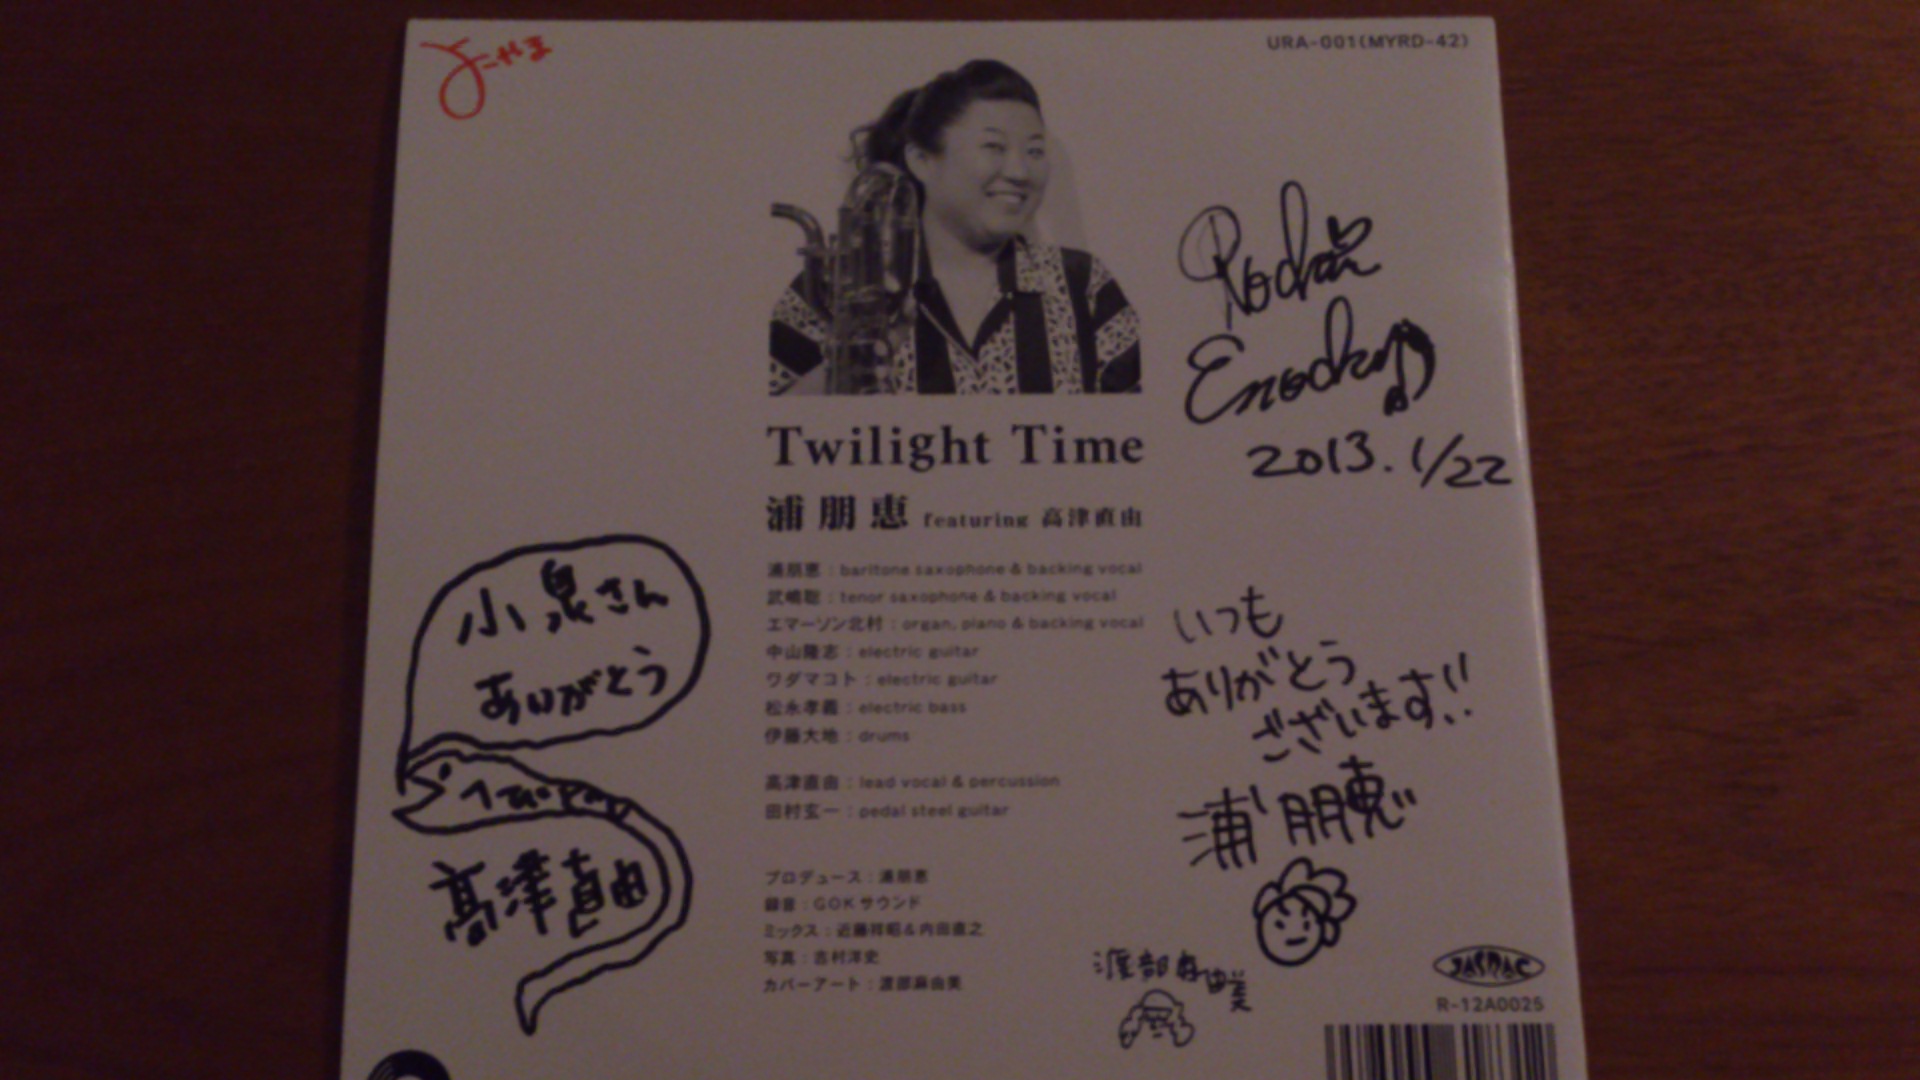 よこやま
URA-001(MYRD-42)
2013.1/22
Twilight Time
浦朋恵 featuring 高津直由
浦朋恵 : baritone saxophone & backing vocal
武嶋聡 : tenor saxophone & backing vocal
エマーソン北村 : organ, piano & backing vocal
中山隆志 : electric guitar
ワダマコト : electric guitar
松永孝義 : electric bass
伊藤大地 : drums
高津直由 : lead vocal & percussion
田村玄一 : pedal steel guitar
プロデュース : 浦朋恵
録音 : GOKサウンド
ミックス : 近藤祥昭&内田直之
写真 : 吉村洋史
カバーアート : 渡部麻由美
小泉さん
ありがとう
高津直由
いつも
ありがとう
ございます!!
浦朋恵
渡部麻由美
JASRAC
R-12A0025